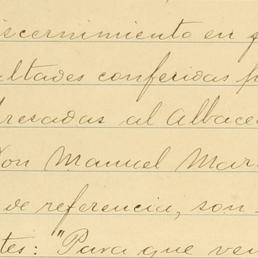 iscernimiento en
ultades conferidas
presadas al Albacea
Don Manuel Mar
de referencia, son
tes: "Para que ven